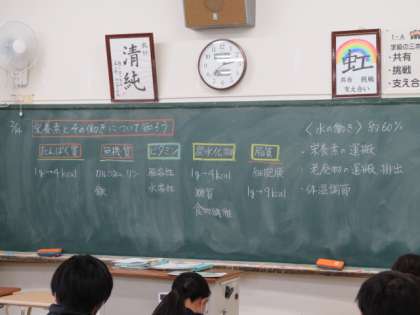 清純
虹
共有 挑戦
支え合い
1-A
学級の三
・共有
・挑戦
・支え合
栄養素とその働きについて知ろう
たんぱく質 無機質 ビタミン 炭水化物 脂質
1g→4kcal カルシウム、リン 脂溶性 1g→4kcal 細胞膜
鉄 水溶性 糖質 1g→9kcal
食物繊維
〈水の働き〉約60%
・栄養素の運搬
・老廃物の運搬、排出
・体温調節